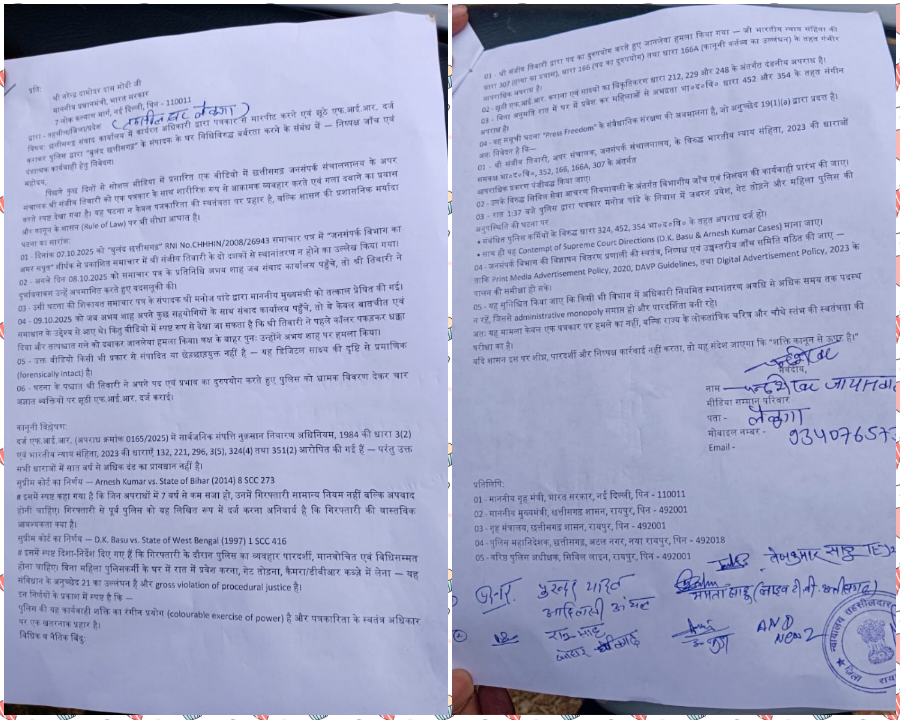 प्रति:
श्री नरेन्द्र दामोदर दास मोदी जी
माननीय प्रधानमंत्री, भारत सरकार
7-लोक कल्याण मार्ग, नई दिल्ली, पिन - 110011
विषय: छत्तीसगढ़ संवाद कार्यालय में कार्यरत अधिकारी द्वारा पत्रकार से मारपीट करने एवं झूठे एफ.आई.आर. दर्ज
कराकर पुलिस द्वारा "बुलंद छत्तीसगढ़" के संपादक के घर विधिविरुद्ध बर्बरता करने के संबंध में — निष्पक्ष जाँच एवं
दंडात्मक कार्यवाही हेतु निवेदन।
महोदय,
पिछले कुछ दिनों से सोशल मीडिया में प्रसारित एक वीडियो में छत्तीसगढ़ जनसंपर्क संचालनालय के अपर
संचालक श्री संजीव तिवारी को एक पत्रकार के साथ शारीरिक रूप से आक्रामक व्यवहार करते एवं गला दबाने का प्रयास
करते स्पष्ट देखा गया है। यह घटना न केवल पत्रकारिता की स्वतंत्रता पर प्रहार है, बल्कि शासन की प्रशासनिक मर्यादा
और कानून के शासन (Rule of Law) पर भी सीधा आघात है।
घटना का सारांश:
01 - दिनांक 07.10.2025 को "बुलंद छत्तीसगढ़" RNI No.CHHHIN/2008/26943 समाचार पत्र में "जनसंपर्क विभाग का
अमर सपूत" शीर्षक से प्रकाशित समाचार में श्री संजीव तिवारी के दो दशकों से स्थानांतरण न होने का उल्लेख किया गया।
02 - अगले दिन 08.10.2025 को समाचार पत्र के प्रतिनिधि अभय शाह जब संवाद कार्यालय पहुँचे, तो श्री तिवारी ने
दुर्भावनावश उन्हें अपमानित करते हुए बदसलूकी की।
03 - उसी घटना की शिकायत समाचार पत्र के संपादक श्री मनोज पांडे द्वारा माननीय मुख्यमंत्री को तत्काल प्रेषित की गई।
04 - 09.10.2025 को जब अभय शाह अपने कुछ सहयोगियों के साथ संवाद कार्यालय पहुँचे, तो ये केवल बातचीत एवं
समाधान के उद्देश्य से आए थे। किंतु वीडियो में स्पष्ट रूप से देखा जा सकता है कि श्री तिवारी ने पहले कॉलर पकड़कर धक्का
दिया और तत्पश्चात गले को दबाकर जानलेवा हमला किया। कक्ष के बाहर पुनः उन्होंने अभय शाह पर हमला किया।
05 - उक्त वीडियो किसी भी प्रकार से संपादित या छेड़छाड़युक्त नहीं है — यह डिजिटल साक्ष्य की दृष्टि से प्रमाणिक
(forensically intact) है।
06 - घटना के पश्चात श्री तिवारी ने अपने पद एवं प्रभाव का दुरुपयोग करते हुए पुलिस को भ्रामक विवरण देकर चार
अज्ञात व्यक्तियों पर झूठी एफ.आई.आर. दर्ज कराई।
कानूनी विश्लेषण:
दर्ज एफ.आई.आर. (अपराध क्रमांक 0165/2025) में सार्वजनिक संपत्ति नुकसान निवारण अधिनियम, 1984 की धारा 3(2)
एवं भारतीय न्याय संहिता, 2023 की धाराएँ 132, 221, 296, 3(5), 324(4) तथा 351(2) आरोपित की गई हैं — परंतु उक्त
सभी धाराओं में सात वर्ष से अधिक दंड का प्रावधान नहीं है।
सुप्रीम कोर्ट का निर्णय — Arnesh Kumar vs. State of Bihar (2014) 8 SCC 273
# इसमें स्पष्ट कहा गया है कि जिन अपराधों में 7 वर्ष से कम सजा हो, उनमें गिरफ्तारी सामान्य नियम नहीं बल्कि अपवाद
होनी चाहिए। गिरफ्तारी से पूर्व पुलिस को यह लिखित रूप में दर्ज करना अनिवार्य है कि गिरफ्तारी की वास्तविक
आवश्यकता क्या है।
सुप्रीम कोर्ट का निर्णय — D.K. Basu vs. State of West Bengal (1997) 1 SCC 416
# इसमें स्पष्ट दिशा-निर्देश दिए गए हैं कि गिरफ्तारी के दौरान पुलिस का व्यवहार पारदर्शी, मानवोचित एवं विधिसम्मत
होना चाहिए। बिना महिला पुलिसकर्मी के घर में रात में प्रवेश करना, गेट तोड़ना, कैमरा/डीबीआर कब्जे में लेना — यह
संविधान के अनुच्छेद 21 का उल्लंघन है और gross violation of procedural justice है।
इन निर्णयों के प्रकाश में स्पष्ट है कि —
पुलिस की यह कार्यवाही शक्ति का रंगीन प्रयोग (colourable exercise of power) है और पत्रकारिता के स्वतंत्र अधिकार
पर एक खतरनाक प्रहार है।
विधिक व नैतिक बिंदु:
01 - श्री संजीव तिवारी द्वारा पद का दुरुपयोग करते हुए जानलेवा हमला किया गया — जो भारतीय न्याय संहिता की
धारा 307 (हत्या का प्रयास), धारा 166 (पद का दुरुपयोग) तथा धारा 166A (कानूनी कर्तव्य का उल्लंघन) के तहत गंभीर
आपराधिक अपराध है।
02 - झूठी एफ.आई.आर. कराना एवं साक्ष्यों का विकृतिकरण धारा 212, 229 और 248 के अंतर्गत दंडनीय अपराध है।
03 - बिना अनुमति रात में घर में प्रवेश कर महिलाओं से अभद्रता भा०द०वि० धारा 452 और 354 के तहत संगीन
अपराध है।
04 - यह समूची घटना "Press Freedom" के संवैधानिक संरक्षण की अवमानना है, जो अनुच्छेद 19(1)(a) द्वारा प्रदत्त है।
अतः निवेदन है कि—
01 - श्री संजीव तिवारी, अपर संचालक, जनसंपर्क संचालनालय, के विरुद्ध भारतीय न्याय संहिता, 2023 की धाराओं
समकक्ष भा०द०वि०, 352, 166, 166A, 307 के अंतर्गत
आपराधिक प्रकरण पंजीबद्ध किया जाए।
02 - उसके विरुद्ध सिविल सेवा आचरण नियमावली के अंतर्गत विभागीय जाँच एवं निलंबन की कार्यवाही प्रारंभ की जाए।
03 - रात 1:37 बजे पुलिस द्वारा पत्रकार मनोज पांडे के निवास में जबरन प्रवेश, गेट तोड़ने और महिला पुलिस की
अनुपस्थिति की घटना पर
• संबंधित पुलिस कर्मियों के विरुद्ध धारा 324, 452, 354 भा०द०वि० के तहत अपराध दर्ज हो।
• साथ ही यह Contempt of Supreme Court Directions (D.K. Basu & Arnesh Kumar Cases) माना जाए।
04 - जनसंपर्क विभाग की विज्ञापन वितरण प्रणाली की स्वतंत्र, निष्पक्ष एवं उच्चस्तरीय जाँच समिति गठित की जाए —
ताकि Print Media Advertisement Policy, 2020, DAVP Guidelines, तथा Digital Advertisement Policy, 2023 के
पालन की समीक्षा हो सके।
05 - यह सुनिश्चित किया जाए कि किसी भी विभाग में अधिकारी नियमित स्थानांतरण अवधि से अधिक समय तक पदस्थ
न रहें, जिससे administrative monopoly समाप्त हो और पारदर्शिता बनी रहे।
अतः यह मामला केवल एक पत्रकार पर हमले का नहीं, बल्कि राज्य के लोकतांत्रिक चरित्र और चौथे स्तंभ की स्वतंत्रता की
परीक्षा का है।
यदि शासन इस पर शीघ्र, पारदर्शी और निष्पक्ष कार्रवाई नहीं करता, तो यह संदेश जाएगा कि "शक्ति कानून से ऊपर है।"
भवदीय,
नाम -
मीडिया सम्मान परिवार
पता -
मोबाइल नम्बर -
Email -
प्रतिलिपि:
01 - माननीय गृह मंत्री, भारत सरकार, नई दिल्ली, पिन - 110011
02 - माननीय मुख्यमंत्री, छत्तीसगढ़ शासन, रायपुर, पिन - 492001
03 - गृह मंत्रालय, छत्तीसगढ़ शासन, रायपुर, पिन - 492001
04 - पुलिस महानिदेशक, छत्तीसगढ़, अटल नगर, नया रायपुर, पिन - 492018
05 - वरिष्ठ पुलिस अधीक्षक, सिविल लाइन, रायपुर, पिन - 492001